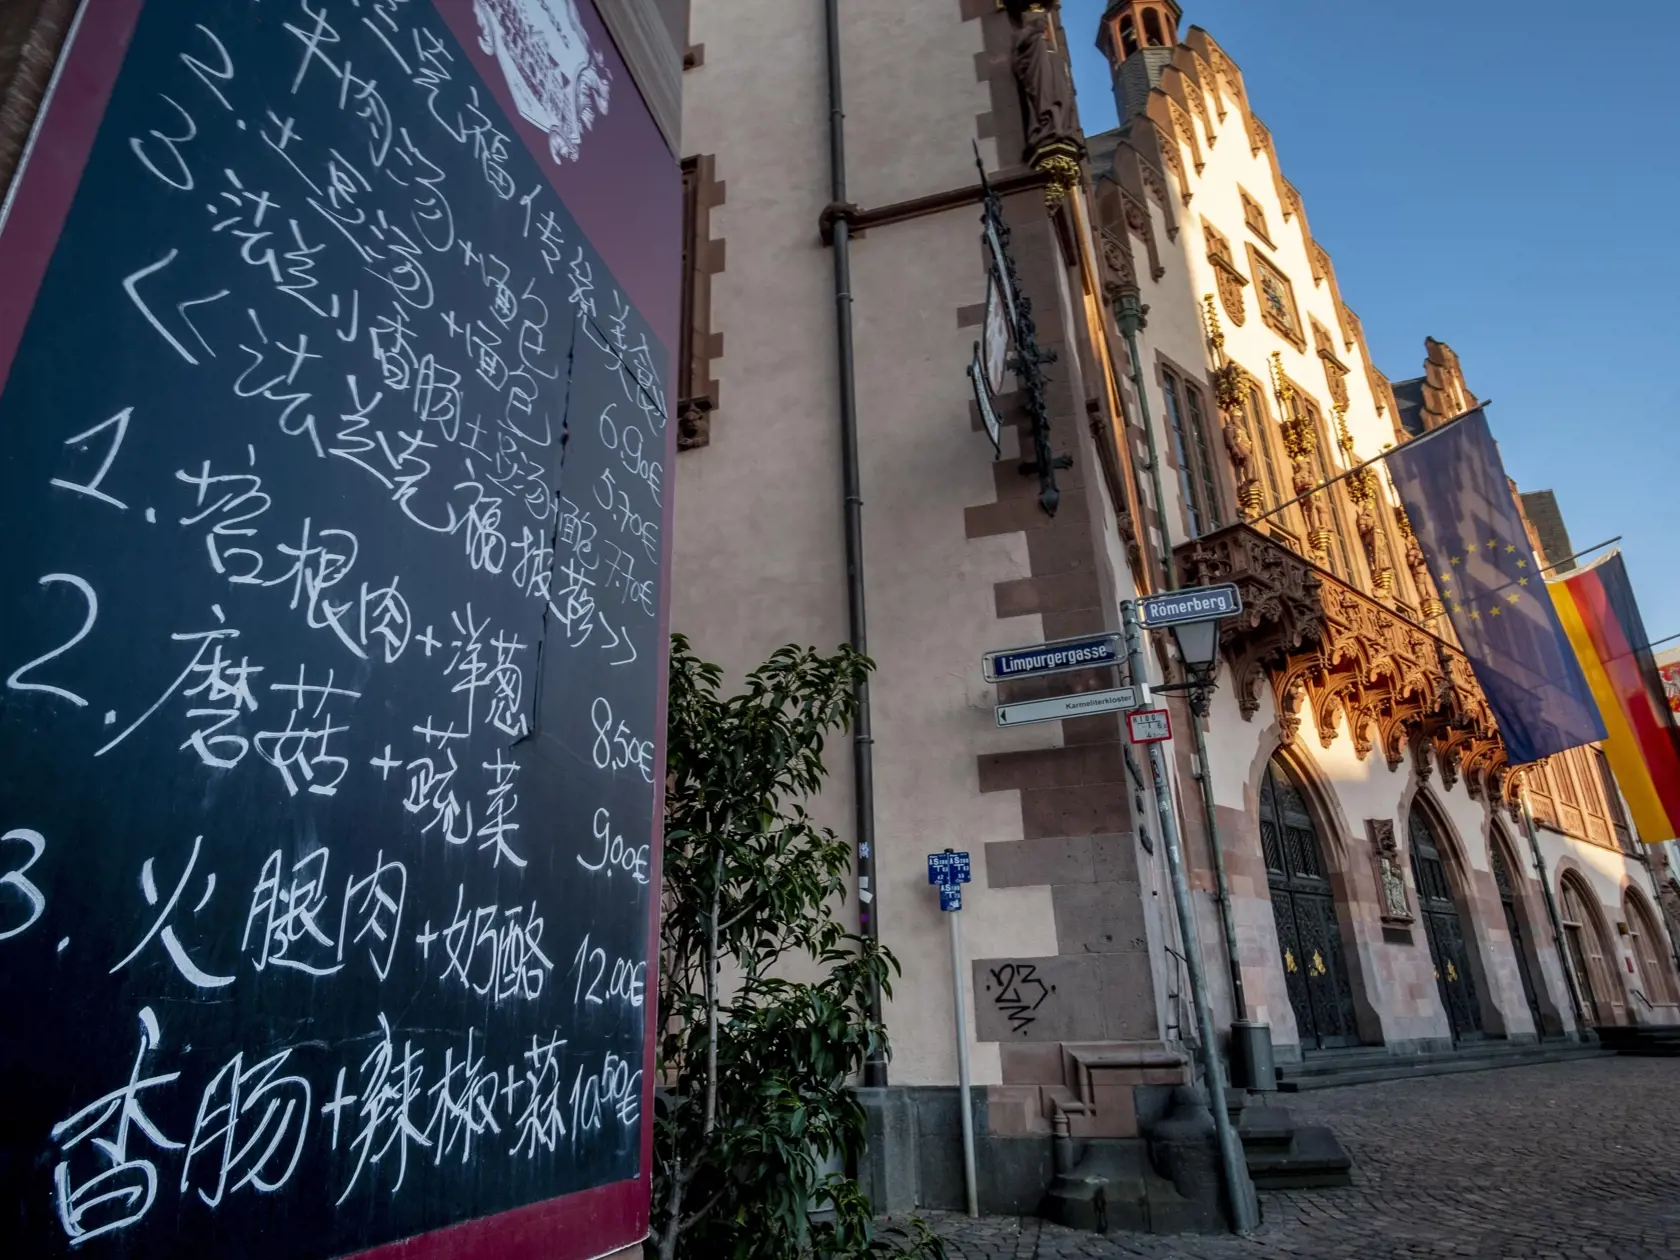 法兰克福传统美食
牛肉汤+面包 6.90€
2. 土豆汤+面包 5.70€
3 法兰小香肠土豆汤+面包 7.70€
<<法兰克福披萨>>
1. 培根肉+洋葱 8.50€
2. 蘑菇+蔬菜 9.00€
3. 火腿肉+奶酪 12.00€
香肠+辣椒+蒜 10.50€
Römerberg
Limpurgergasse
Karmeliterkloster
23